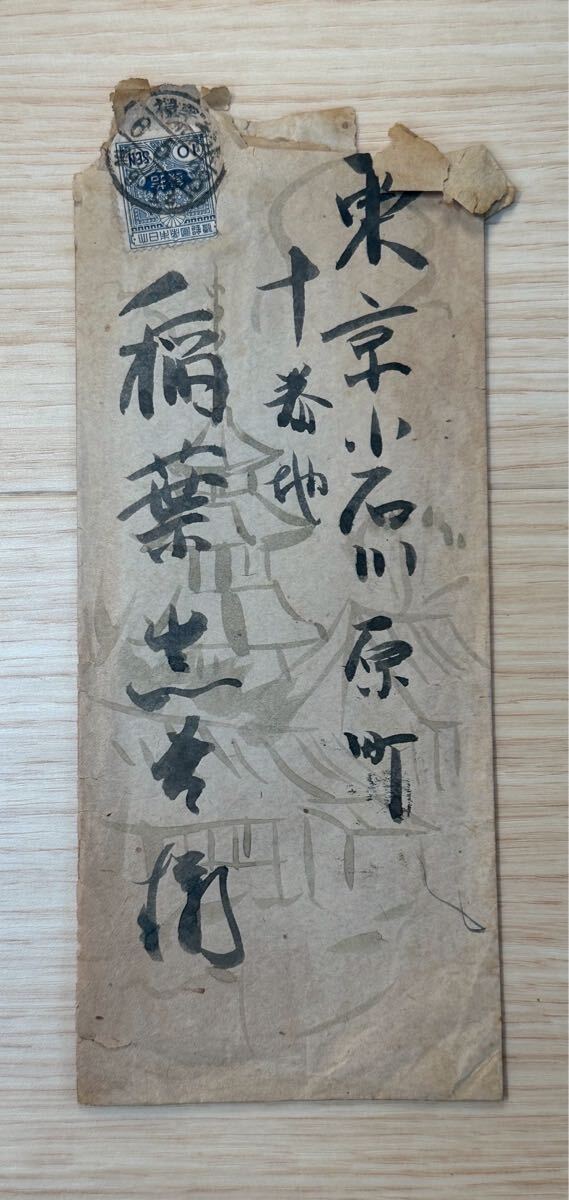 東京小石川原町
十番地
稲葉岩吉様
大日本帝國郵便
10 SEN